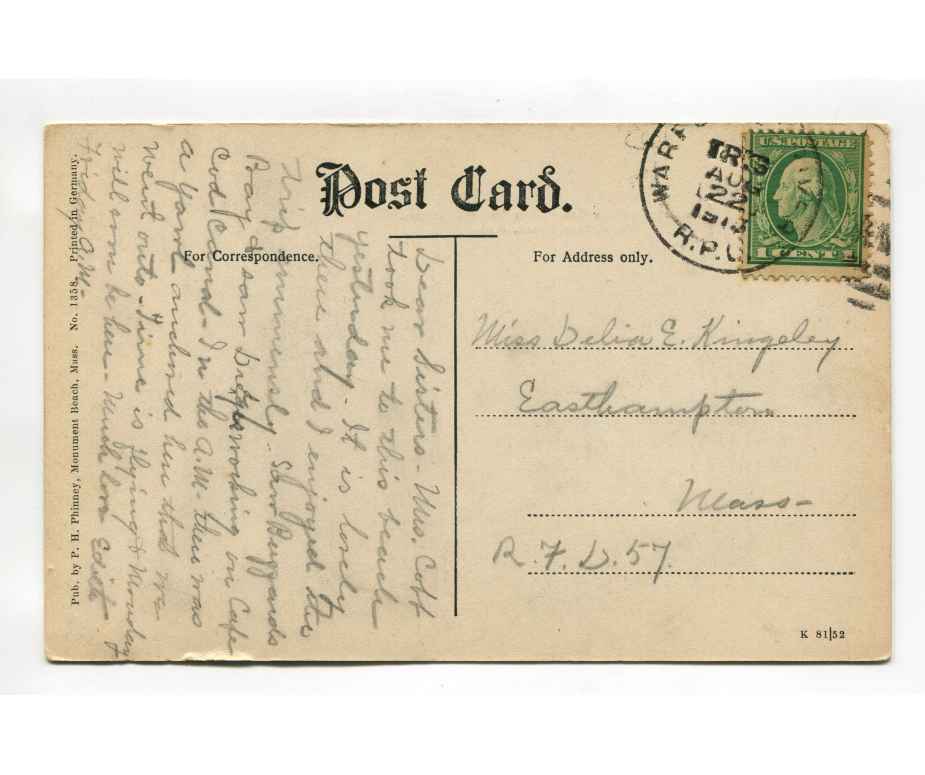 Post Card.
For Correspondence.
For Address only.
Dear Sisters - Mrs. Cobb
took me to this beach
yesterday - It is lovely
there and I enjoyed the
trip immensely. Saw Buzzards
Bay & saw working on Cape
Cod Canal - In the A.M. there was
a yawl anchored here that we
went out to - Time is flying & Monday
will soon be here - Much love Edith
Friday A.M.
Pub. by P. H. Phinney, Monument Beach, Mass. No. 1358. Printed in Germany.
AUG
22
1913
R.P.O.
U.S. POSTAGE
1 CENT 1
Miss Delia E. Kingsley
Easthampton
Mass-
R. F. D. 57.
K 81|52